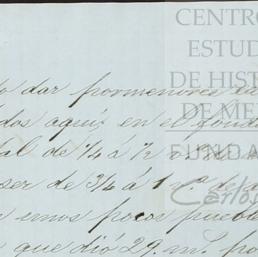 CENTRO
ESTUD
DE HIST
DE ME
FUNDA
Carlos
dar pormenores
dos aquí, en el fond
tal de ¼ á ½
ser de ¾ á 1 v.ª de
unos pocos pueble
que dió 29. m.s po